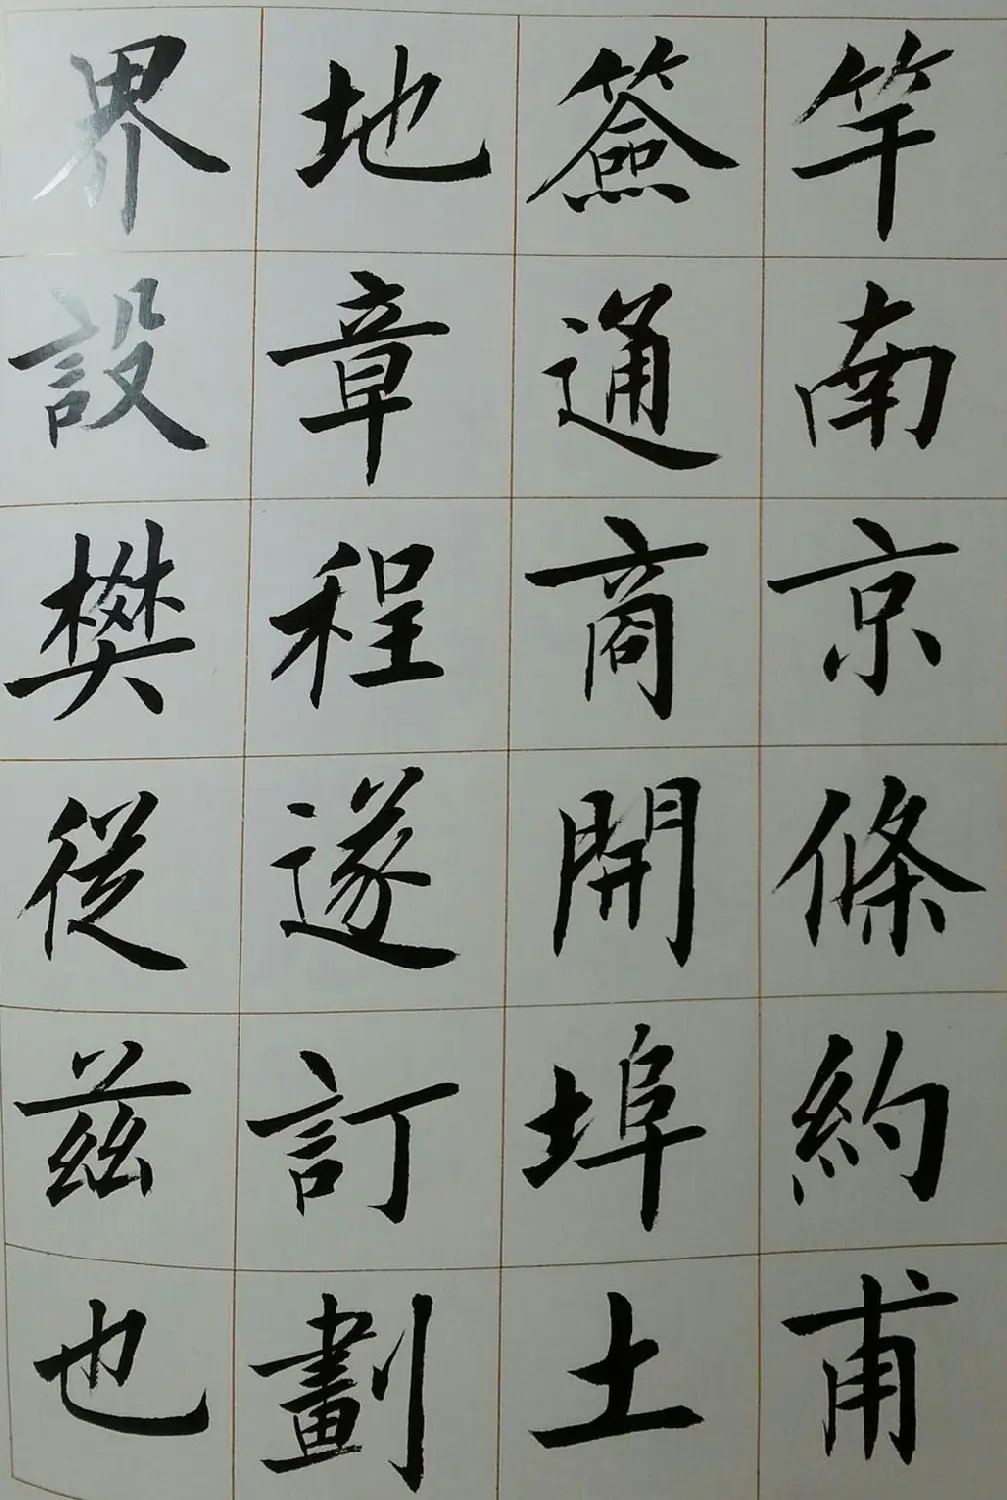 竿南京條約甫
簽通商開埠土
地章程遂訂劃
界設樊從茲也